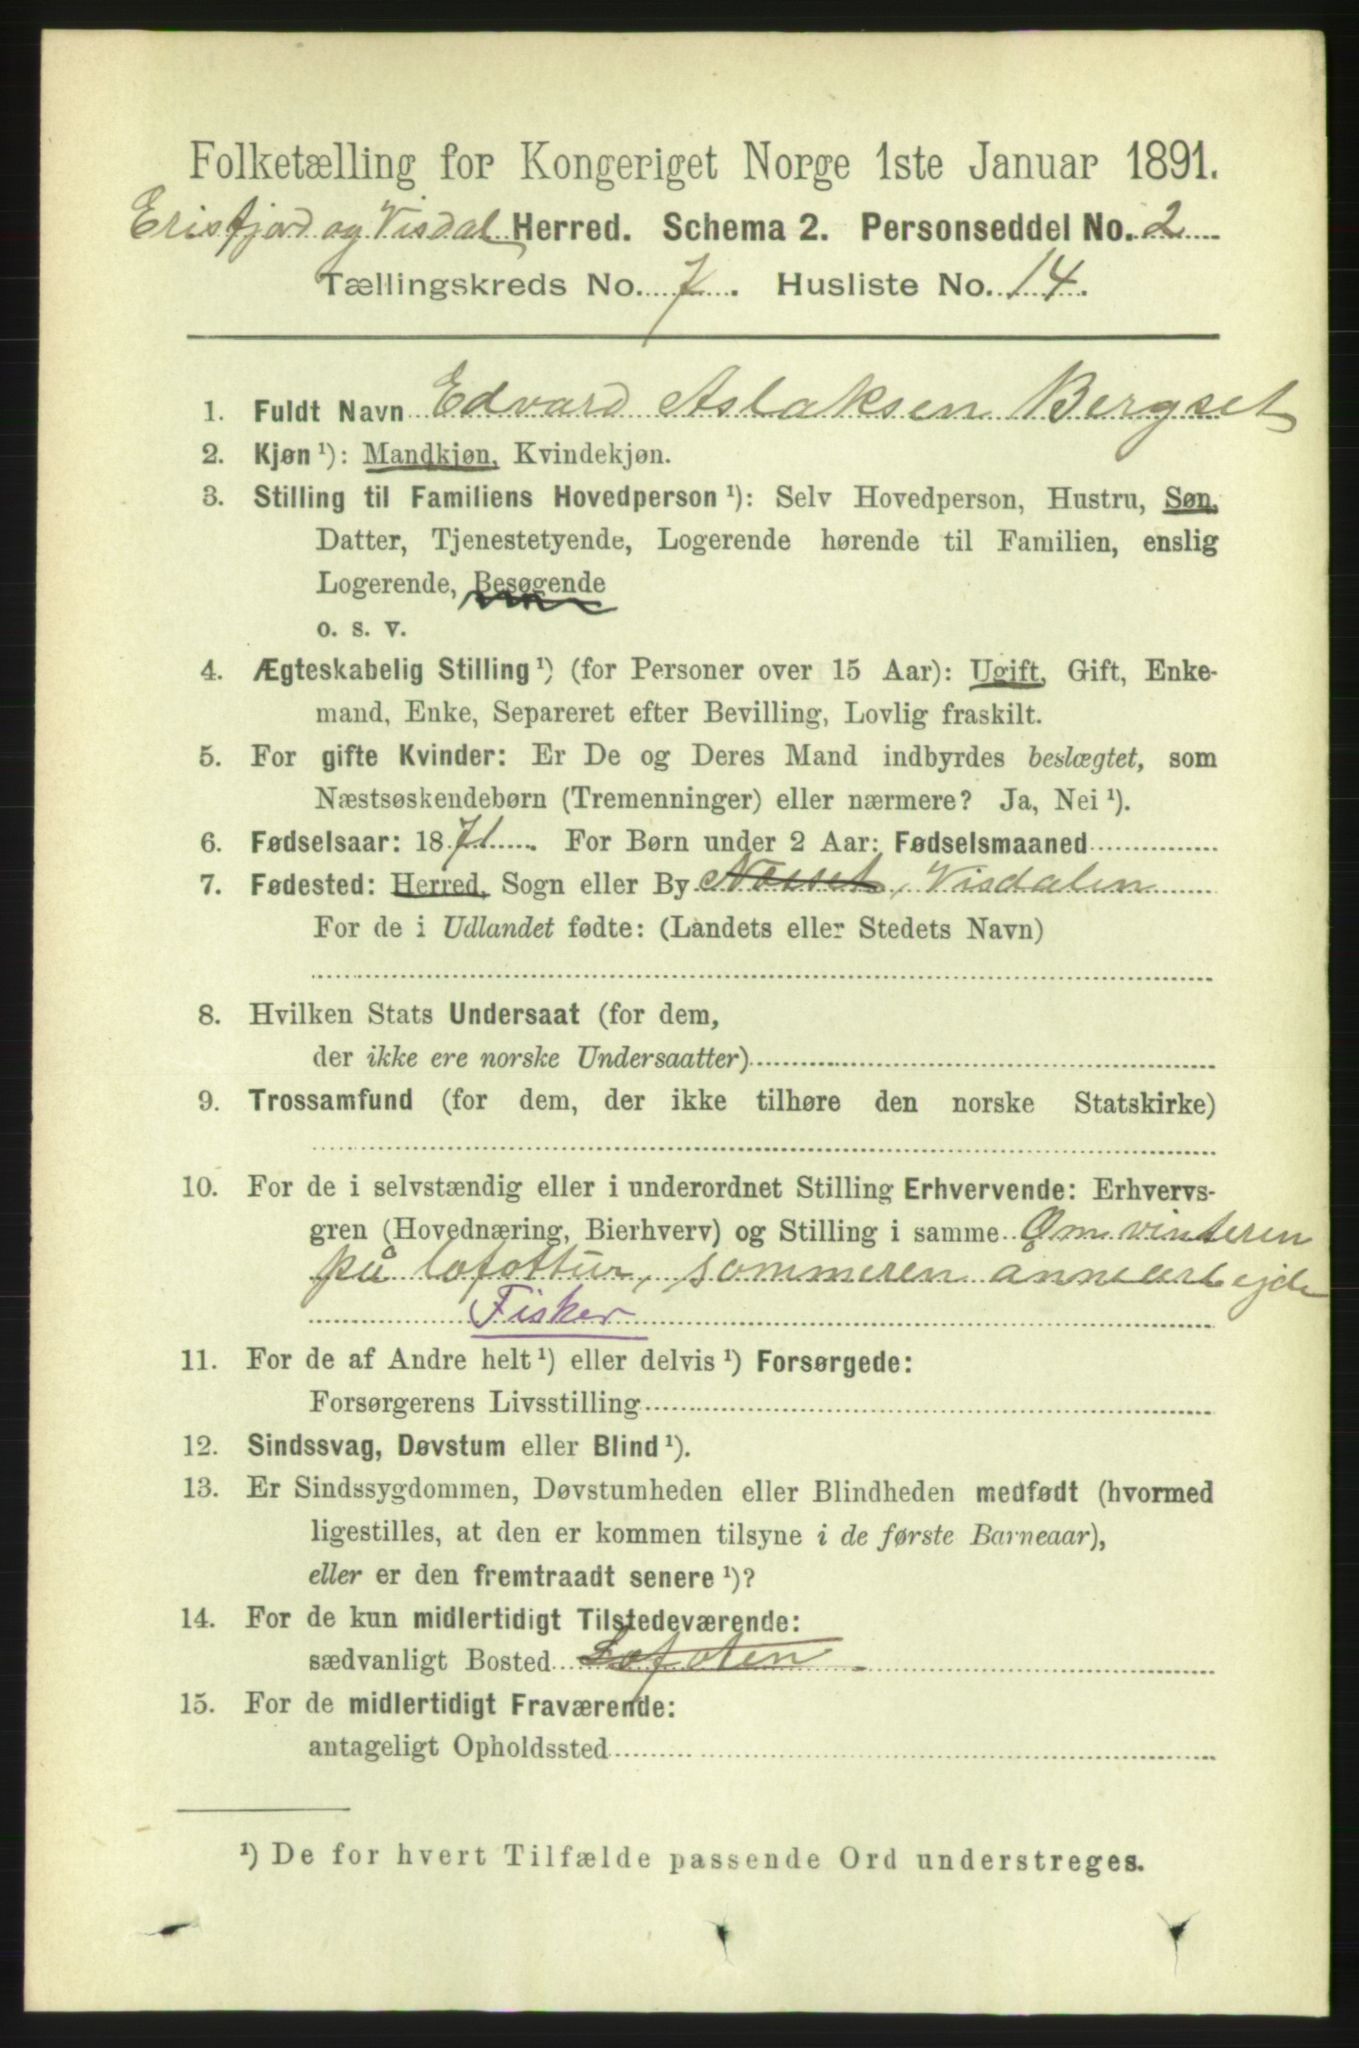 Folketælling for Kongeriget Norge 1ste Januar 1891.
Erisfjord og Visdal Herred. Schema 2. Personseddel No. 2
Tællingskreds No. 7. Husliste No. 14.
1. Fuldt Navn Edvard Aslaksen Bergset
2. Kjøn ¹): Mandkjøn, Kvindekjøn.
3. Stilling til Familiens Hovedperson ¹): Selv Hovedperson, Hustru, Søn,
Datter, Tjenestetyende, Logerende hørende til Familien, enslig
Logerende, Besøgende
o. s. v.
4. Ægteskabelig Stilling ¹) (for Personer over 15 Aar): Ugift, Gift, Enke-
mand, Enke, Separeret efter Bevilling, Lovlig fraskilt.
5. For gifte Kvinder: Er De og Deres Mand indbyrdes beslægtet, som
Næstsøskendebørn (Tremenninger) eller nærmere? Ja, Nei ¹).
6. Fødselsaar: 1871. For Børn under 2 Aar: Fødselsmaaned
7. Fødested: Herred, Sogn eller By Nesset, Visdalen
For de i Udlandet fødte: (Landets eller Stedets Navn)
8. Hvilken Stats Undersaat (for dem,
der ikke ere norske Undersaatter)
9. Trossamfund (for dem, der ikke tilhøre den norske Statskirke)
10. For de i selvstændig eller i underordnet Stilling Erhvervende: Erhvervs-
gren (Hovednæring, Bierhverv) og Stilling i samme Om vinteren
på lofottur, sommeren annearbejde
Fisker
11. For de af Andre helt ¹) eller delvis ¹) Forsørgede:
Forsørgerens Livsstilling
12. Sindssvag, Døvstum eller Blind ¹).
13. Er Sindssygdommen, Døvstumheden eller Blindheden medfødt (hvormed
ligestilles, at den er kommen tilsyne i de første Barneaar),
eller er den fremtraadt senere ¹)?
14. For de kun midlertidigt Tilstedeværende:
sædvanligt Bosted Lofoten
15. For de midlertidigt Fraværende:
antageligt Opholdssted
¹) De for hvert Tilfælde passende Ord understreges.